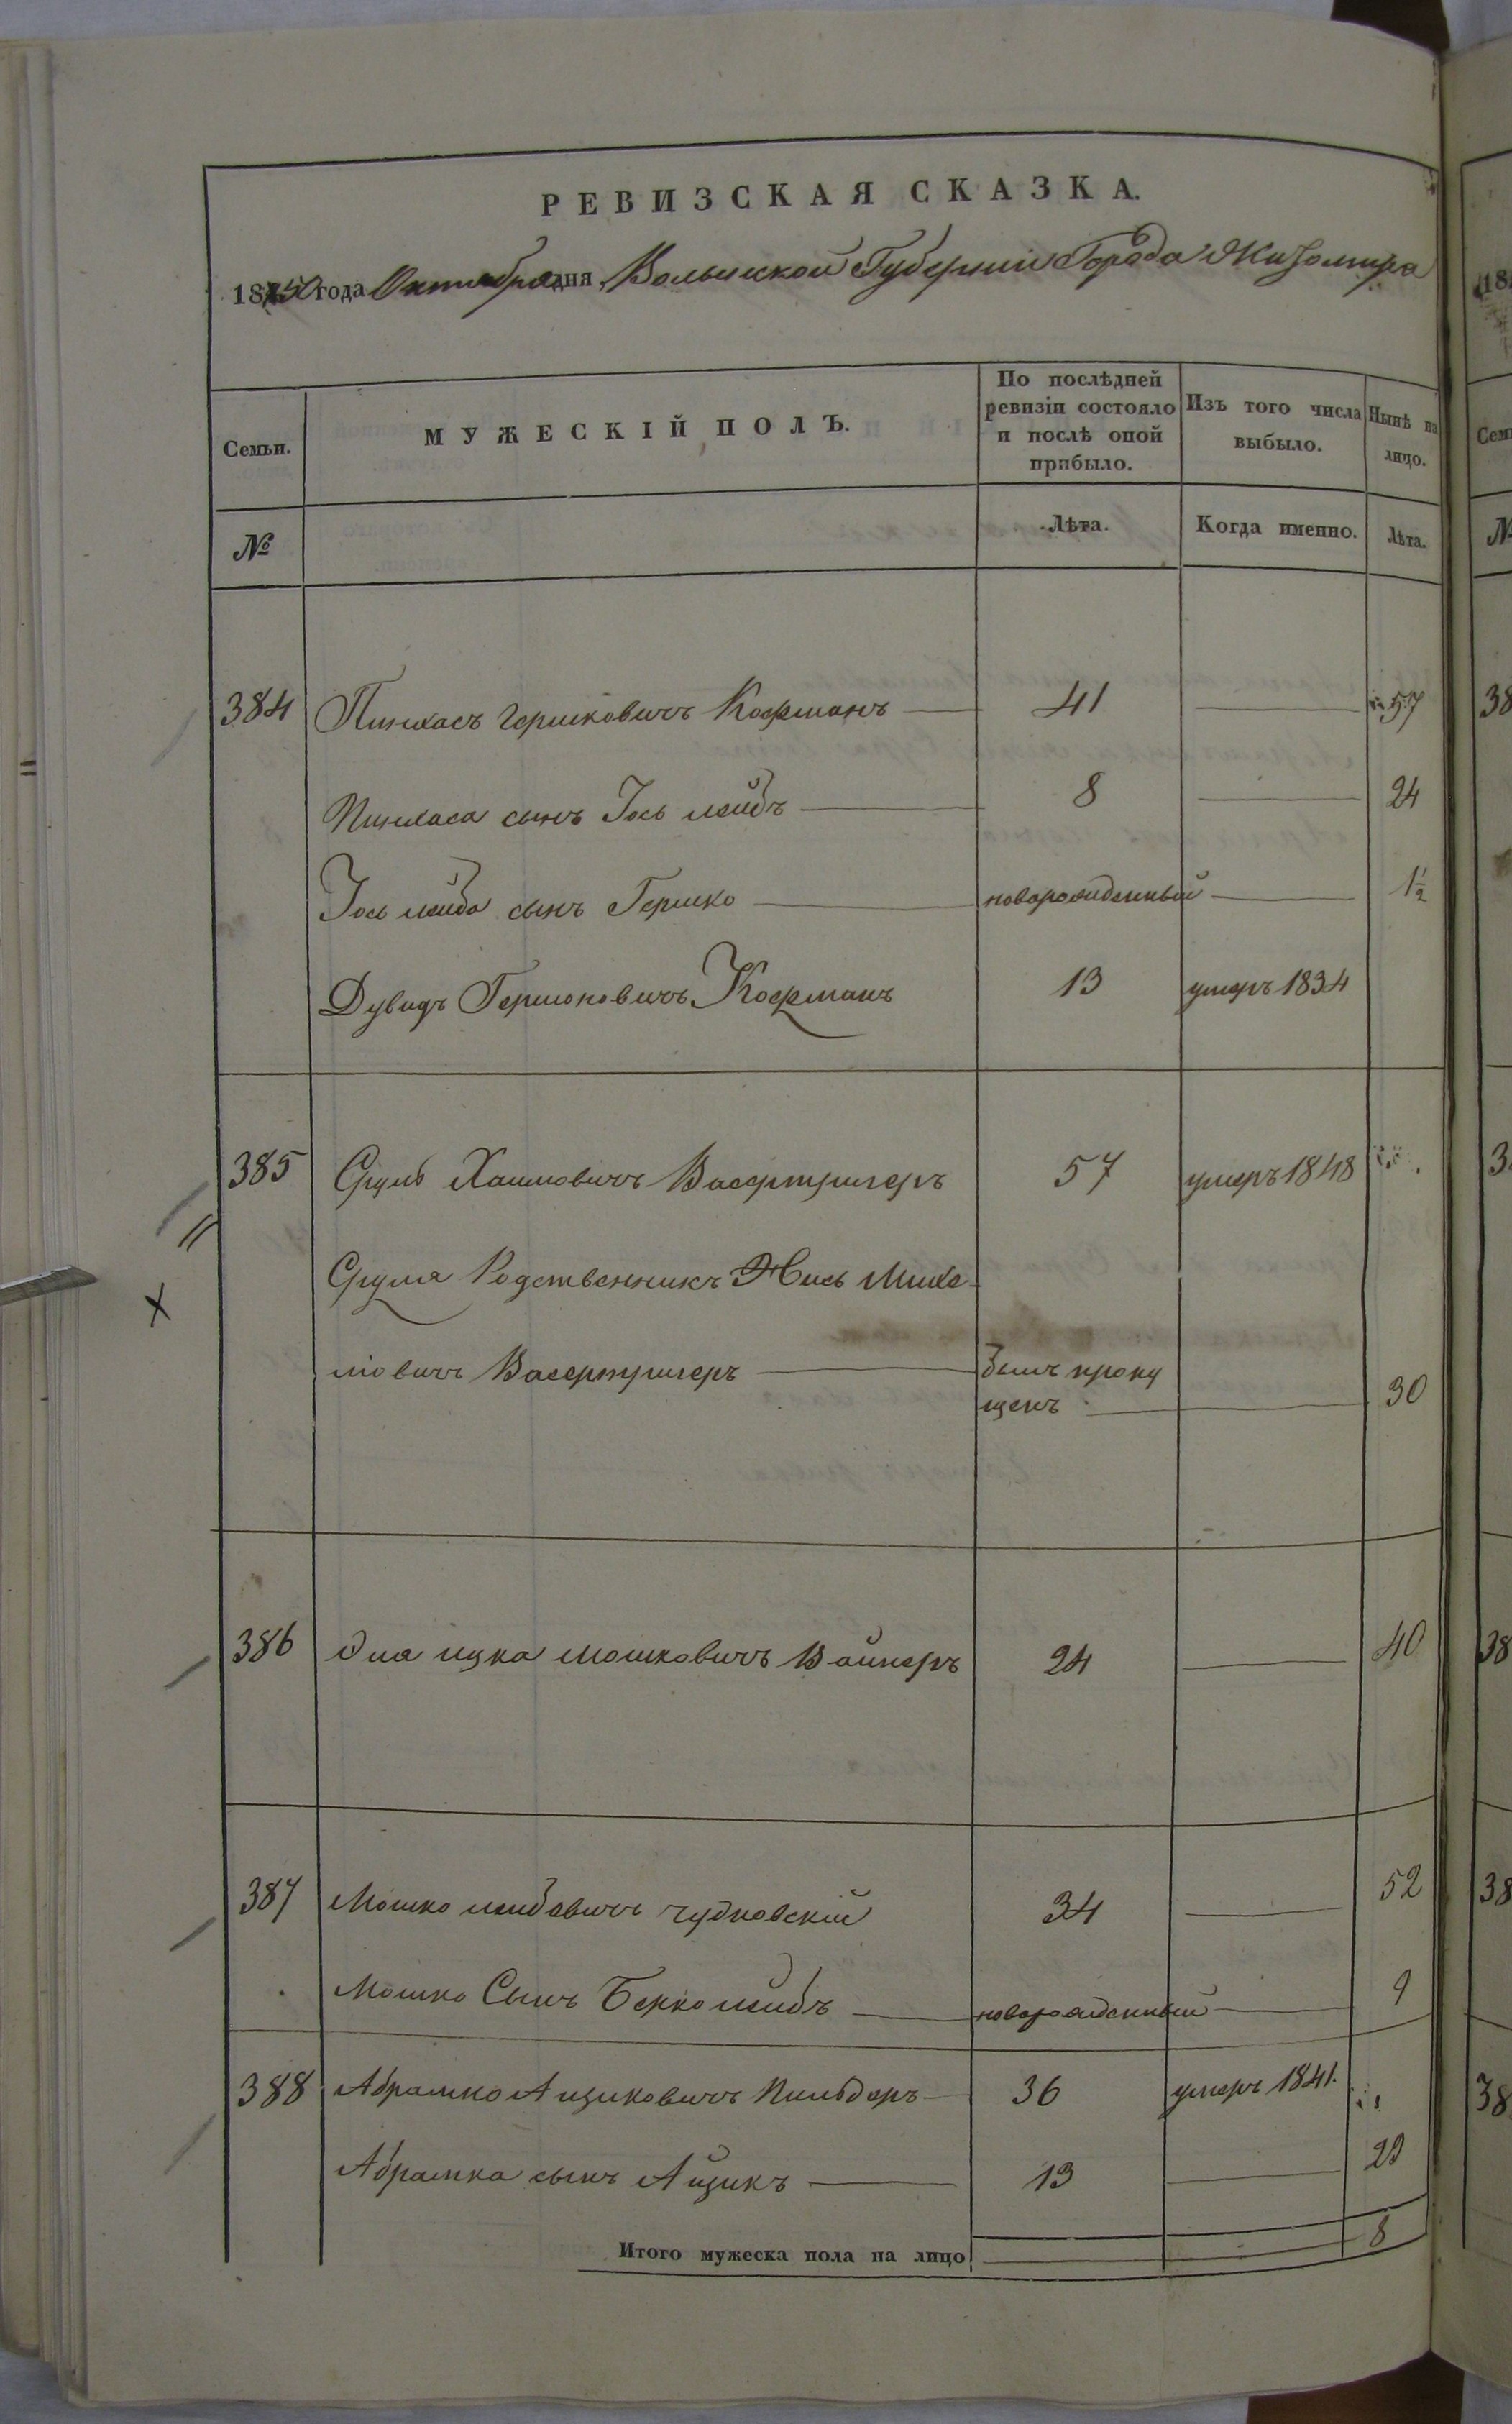 РЕВИЗСКАЯ СКАЗКА.
1850 года Октября дня Волынской Губерніи Города Житомира
Семьи. МУЖЕСКІЙ ПОЛЪ. По послѣдней ревизіи состояло и послѣ оной прибыло. Изъ того числа выбыло. Нынѣ на лицо.
№ Лѣта. Когда именно. Лѣта.
384 Пинхасъ Гершковичъ Кофманъ 41 57
Пинхаса сынъ Іось лейбъ 8 24
Іось лейба сынъ Гершко новорожденный 1½
Дувидъ Гершковичъ Кофманъ 13 умеръ 1834
385 Сруль Хаимовичъ Васертригеръ 57 умеръ 1848
Сруля Родственникъ Михе-
лiовичъ Васертригеръ былъ пропу
щенъ 30
386 ицка Мошковичъ Вайнеръ 24 40
387 Мошко лейбовичъ Чудновскій 34 52
Мошко Сынъ Берко лейбъ новорожденный 9
388 Абрамко Айзиковичъ 36 умеръ 1841.
Абрамка сынъ Айзикъ 13 29
Итого мужеска пола на лицо 8